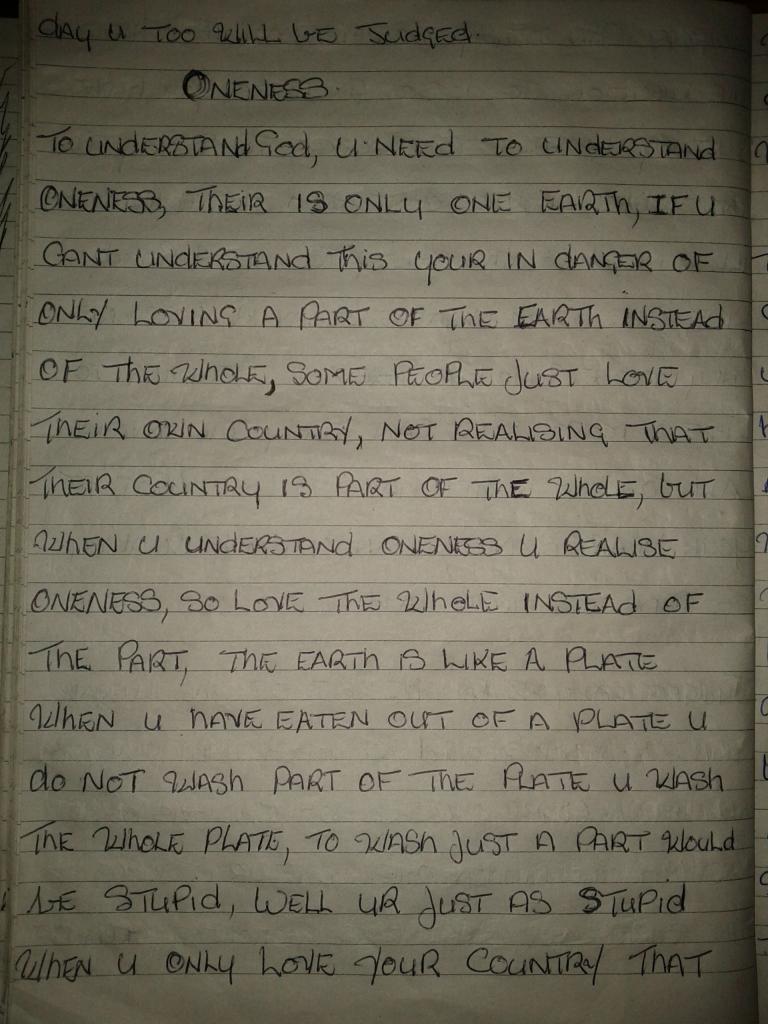 day u too will be Judged.
ONENESS.
TO UNDERSTAND God, U NEED TO UNDERSTAND
ONENESS, THEIR IS ONLY ONE EARTH, IF U
CANT UNDERSTAND This YOUR IN dANGER OF
ONLY LOVING A PART OF THE EARTH INSTEAD
OF THE WhOLE, SOME PEOPLE JUST LOVE
THEIR OWN COUNTRY, NOT REALISING THAT
THEIR COUNTRY IS PART OF THE WhOLE, bUT
WhEN U UNDERSTAND ONENESS U REALISE
ONENESS, SO LOVE THE WhOLE INSTEAD OF
THE PART, THE EARTH IS LIKE A PLATE
WhEN U HAVE EATEN OUT OF A PLATE U
do NOT WASh PART OF THE PLATE U WASh
THE WhOLE PLATE, TO WASh JUST A PART WOULd
bE STUPId, WELL UR JUST AS STUPId
WhEN U ONLY LOVE YOUR COUNTRY THAT